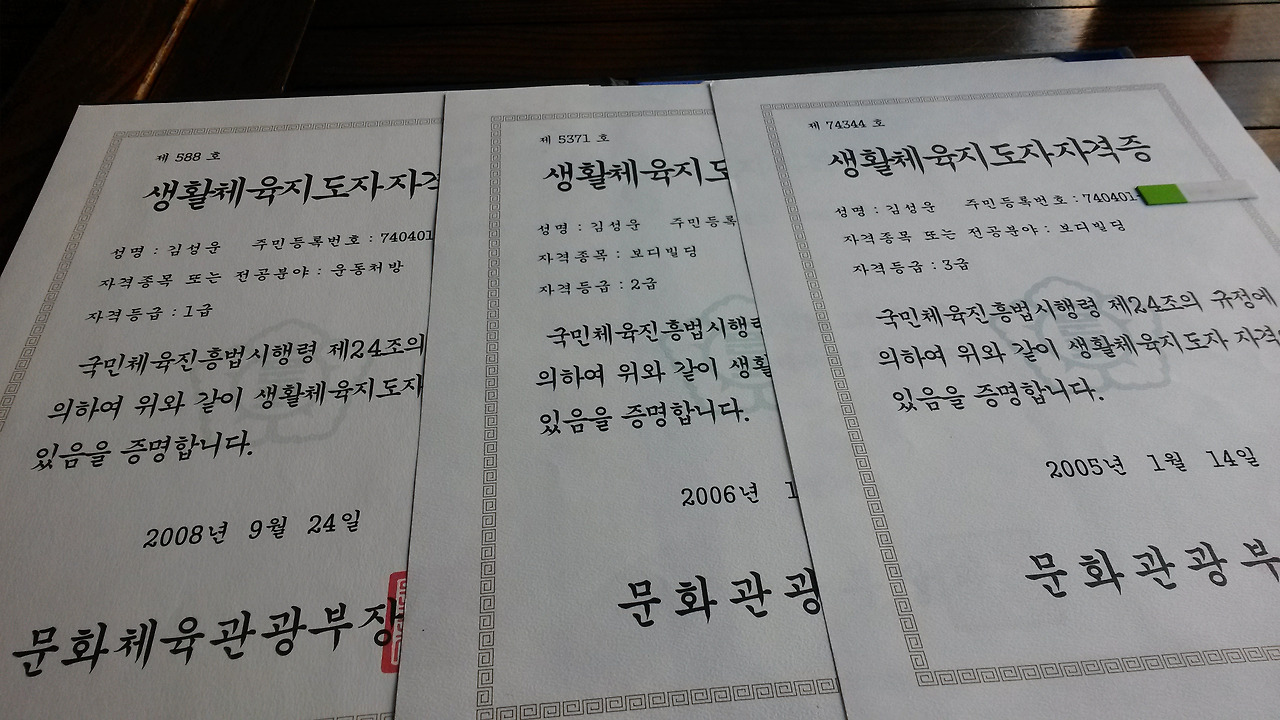 제 588 호
생활체육지도자자격
성명 : 김성운 주민등록번호 : 740401
자격종목 또는 전공분야 : 운동처방
자격등급 : 1급
국민체육진흥법시행령 제24조의
의하여 위와 같이 생활체육지도자
있음을 증명합니다.
2008년 9월 24일
문화체육관광부장
제 5371 호
생활체육지도
성명 : 김성운 주민등록
자격종목 : 보디빌딩
자격등급 : 2급
국민체육진흥법시행령
의하여 위와 같이 생활
있음을 증명합니다.
2006년 1
문화관광
제 74344 호
생활체육지도자자격증
성명 : 김성운 주민등록번호 : 740401
자격종목 또는 전공분야 : 보디빌딩
자격등급 : 3급
국민체육진흥법시행령 제24조의 규정에
의하여 위와 같이 생활체육지도자 자격
있음을 증명합니다.
2005년 1월 14일
문화관광부